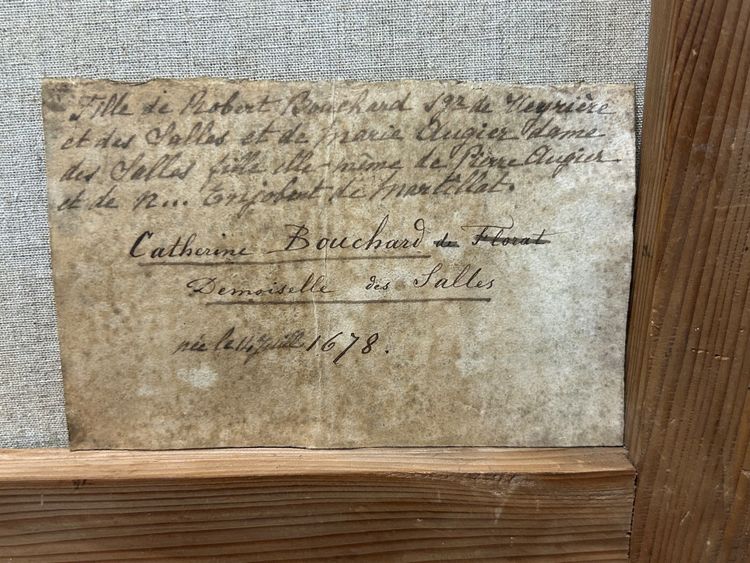 Fille de Robert Bouchard sgr de Veyrière
et des Salles et de Marie Augier dame
des Salles fille elle-même de Pierre Augier
et de n... Enjobert de Martillat.
Catherine Bouchard de Florat
Demoiselle des Salles
née le 14 Juill 1678.